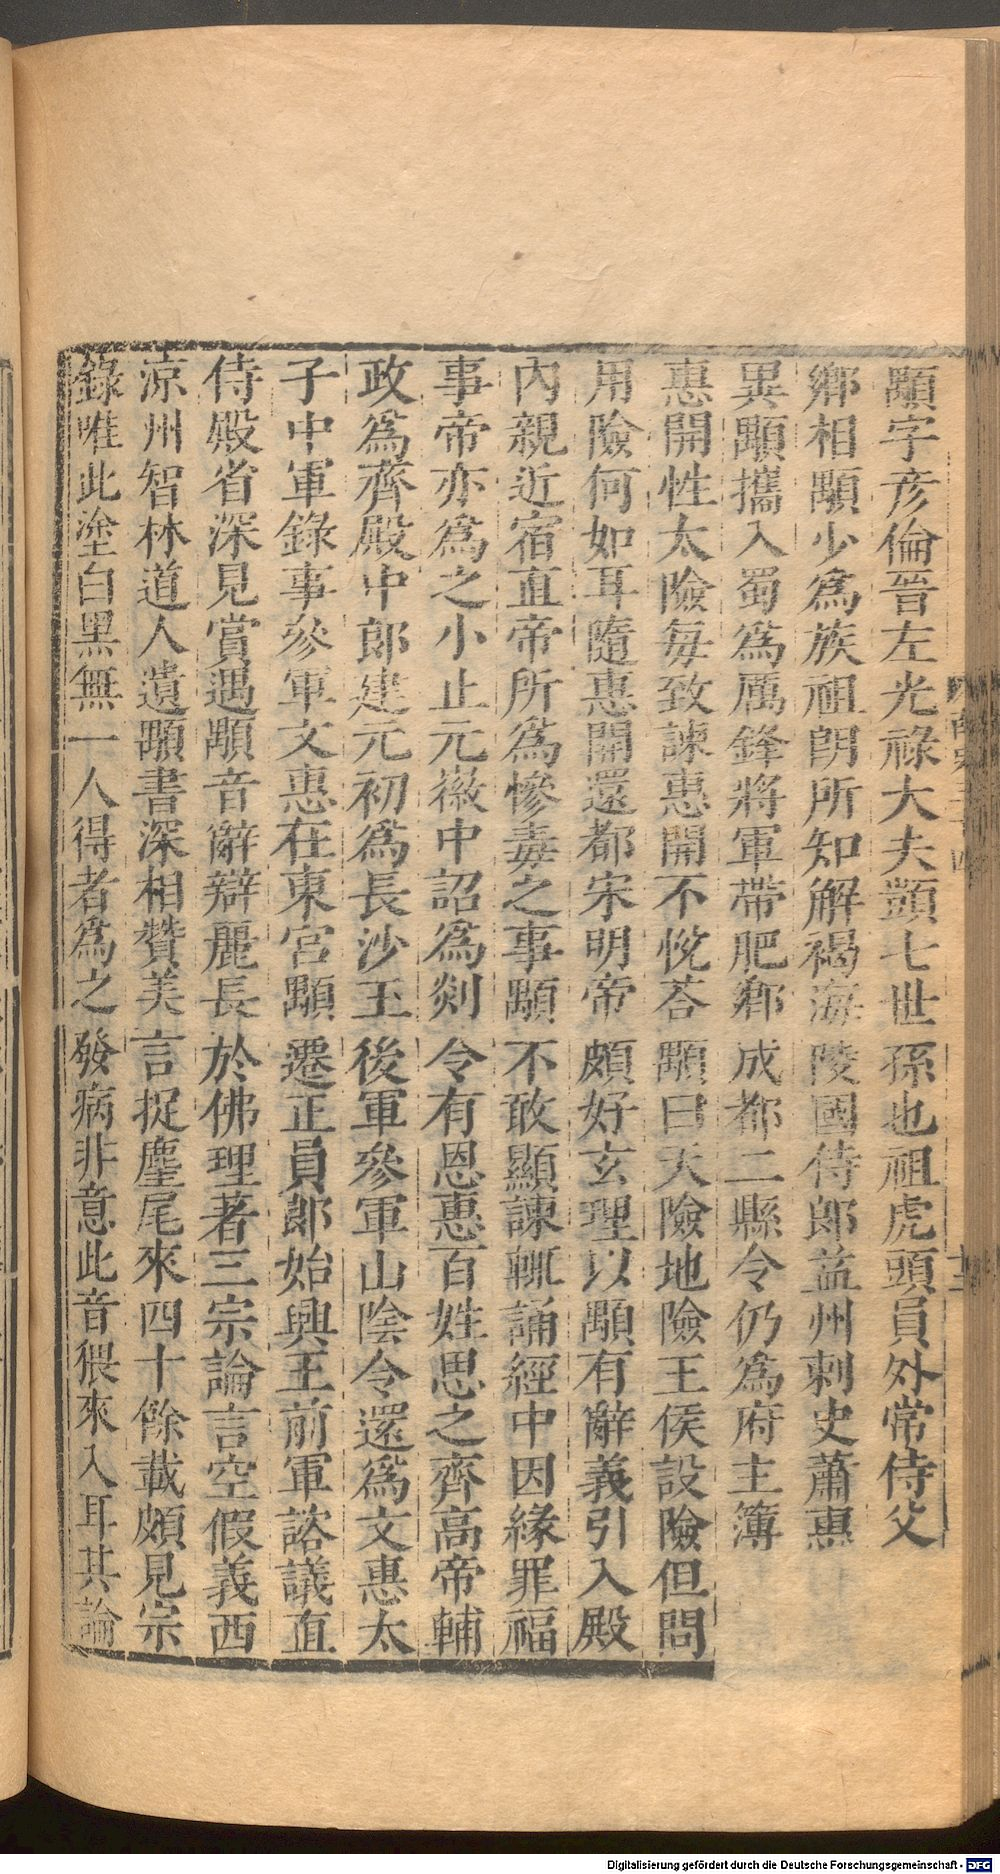 顒字彥倫晉左光祿大夫顗七世孫也祖虎頭員外常侍父
鄉相顒少爲族祖朗所知解褐海陵國侍郎益州刺史蕭惠
異顒攜入蜀爲厲鋒將軍帶肥鄉成都二縣令仍爲府主簿
惠開性太險每致諫惠開不悅荅顒曰天險地險王侯設險但問
用險何如耳隨惠開還都宋明帝頗好玄理以顒有辭義引入殿
內親近宿直帝所爲慘毒之事顒不敢顯諫輒誦經中因緣罪福
事帝亦爲之小止元徽中詔爲剡令有恩惠百姓思之齊高帝輔
政爲齊殿中郎建元初爲長沙王後軍參軍山陰令還爲文惠太
子中軍錄事參軍文惠在東宮顒遷正員郎始興王前軍諮議直
侍殿省深見賞遇顒音辭辯麗長於佛理著三宗論言空假義西
涼州智林道人遺顒書深相贊美言捉麈尾來四十餘載頗見宗
錄唯此塗白黑無一人得者爲之發病非意此音猥來入耳其論
Digitalisierung gefördert durch die Deutsche Forschungsgemeinschaft - DFG